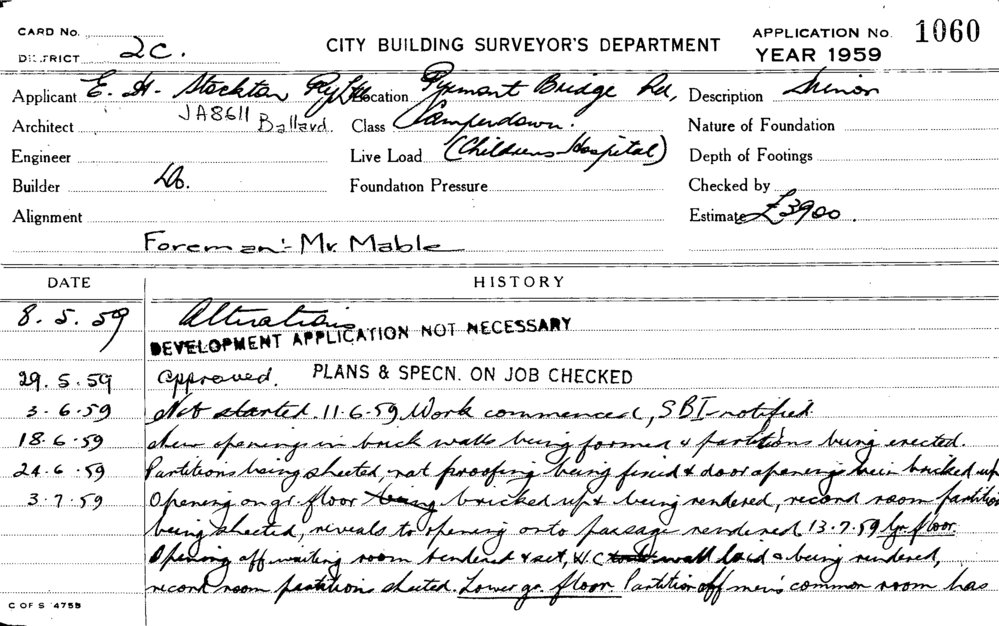 CARD NO.
DISTRICT 2C.
CITY BUILDING SURVEYOR'S DEPARTMENT
APPLICATION NO. 1060
YEAR 1959
Applicant E. H. Stockton Pty Ltd Location Pyrmont Bridge Rd, Description Minor
Architect JA8611 Ballard. Class Camperdown. Nature of Foundation
Engineer Live Load (Childrens Hospital) Depth of Footings
Builder Do. Foundation Pressure Checked by
Alignment Estimate £3900.
Foreman:- Mr. Mable
DATE HISTORY
8.5.59 Alterations
DEVELOPMENT APPLICATION NOT NECESSARY
29.5.59 Approved. PLANS & SPECN. ON JOB CHECKED
3.6.59 Not started. 11.6.59 Work commenced, SBI notified.
18.6.59 New openings in brick walls being formed & partitions being erected.
24.6.59 Partitions being sheeted, rat proofing being fixed & door openings being bricked up
3.7.59 Opening on gr. floor being bricked up & being rendered, record room partition
being sheeted, reveals to opening onto passage rendered 13.7.59 Gr. floor.
Opening off waiting room rendered & set, W.C wall laid & being rendered,
record room partitions sheeted. Lower gr. floor. Partition off men's common room has
C OF S 475B